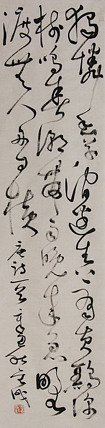 獨憐幽草澗邊生上有黃鸝深
樹鳴春潮帶雨晚來急野
渡無人舟自橫
唐詩一首